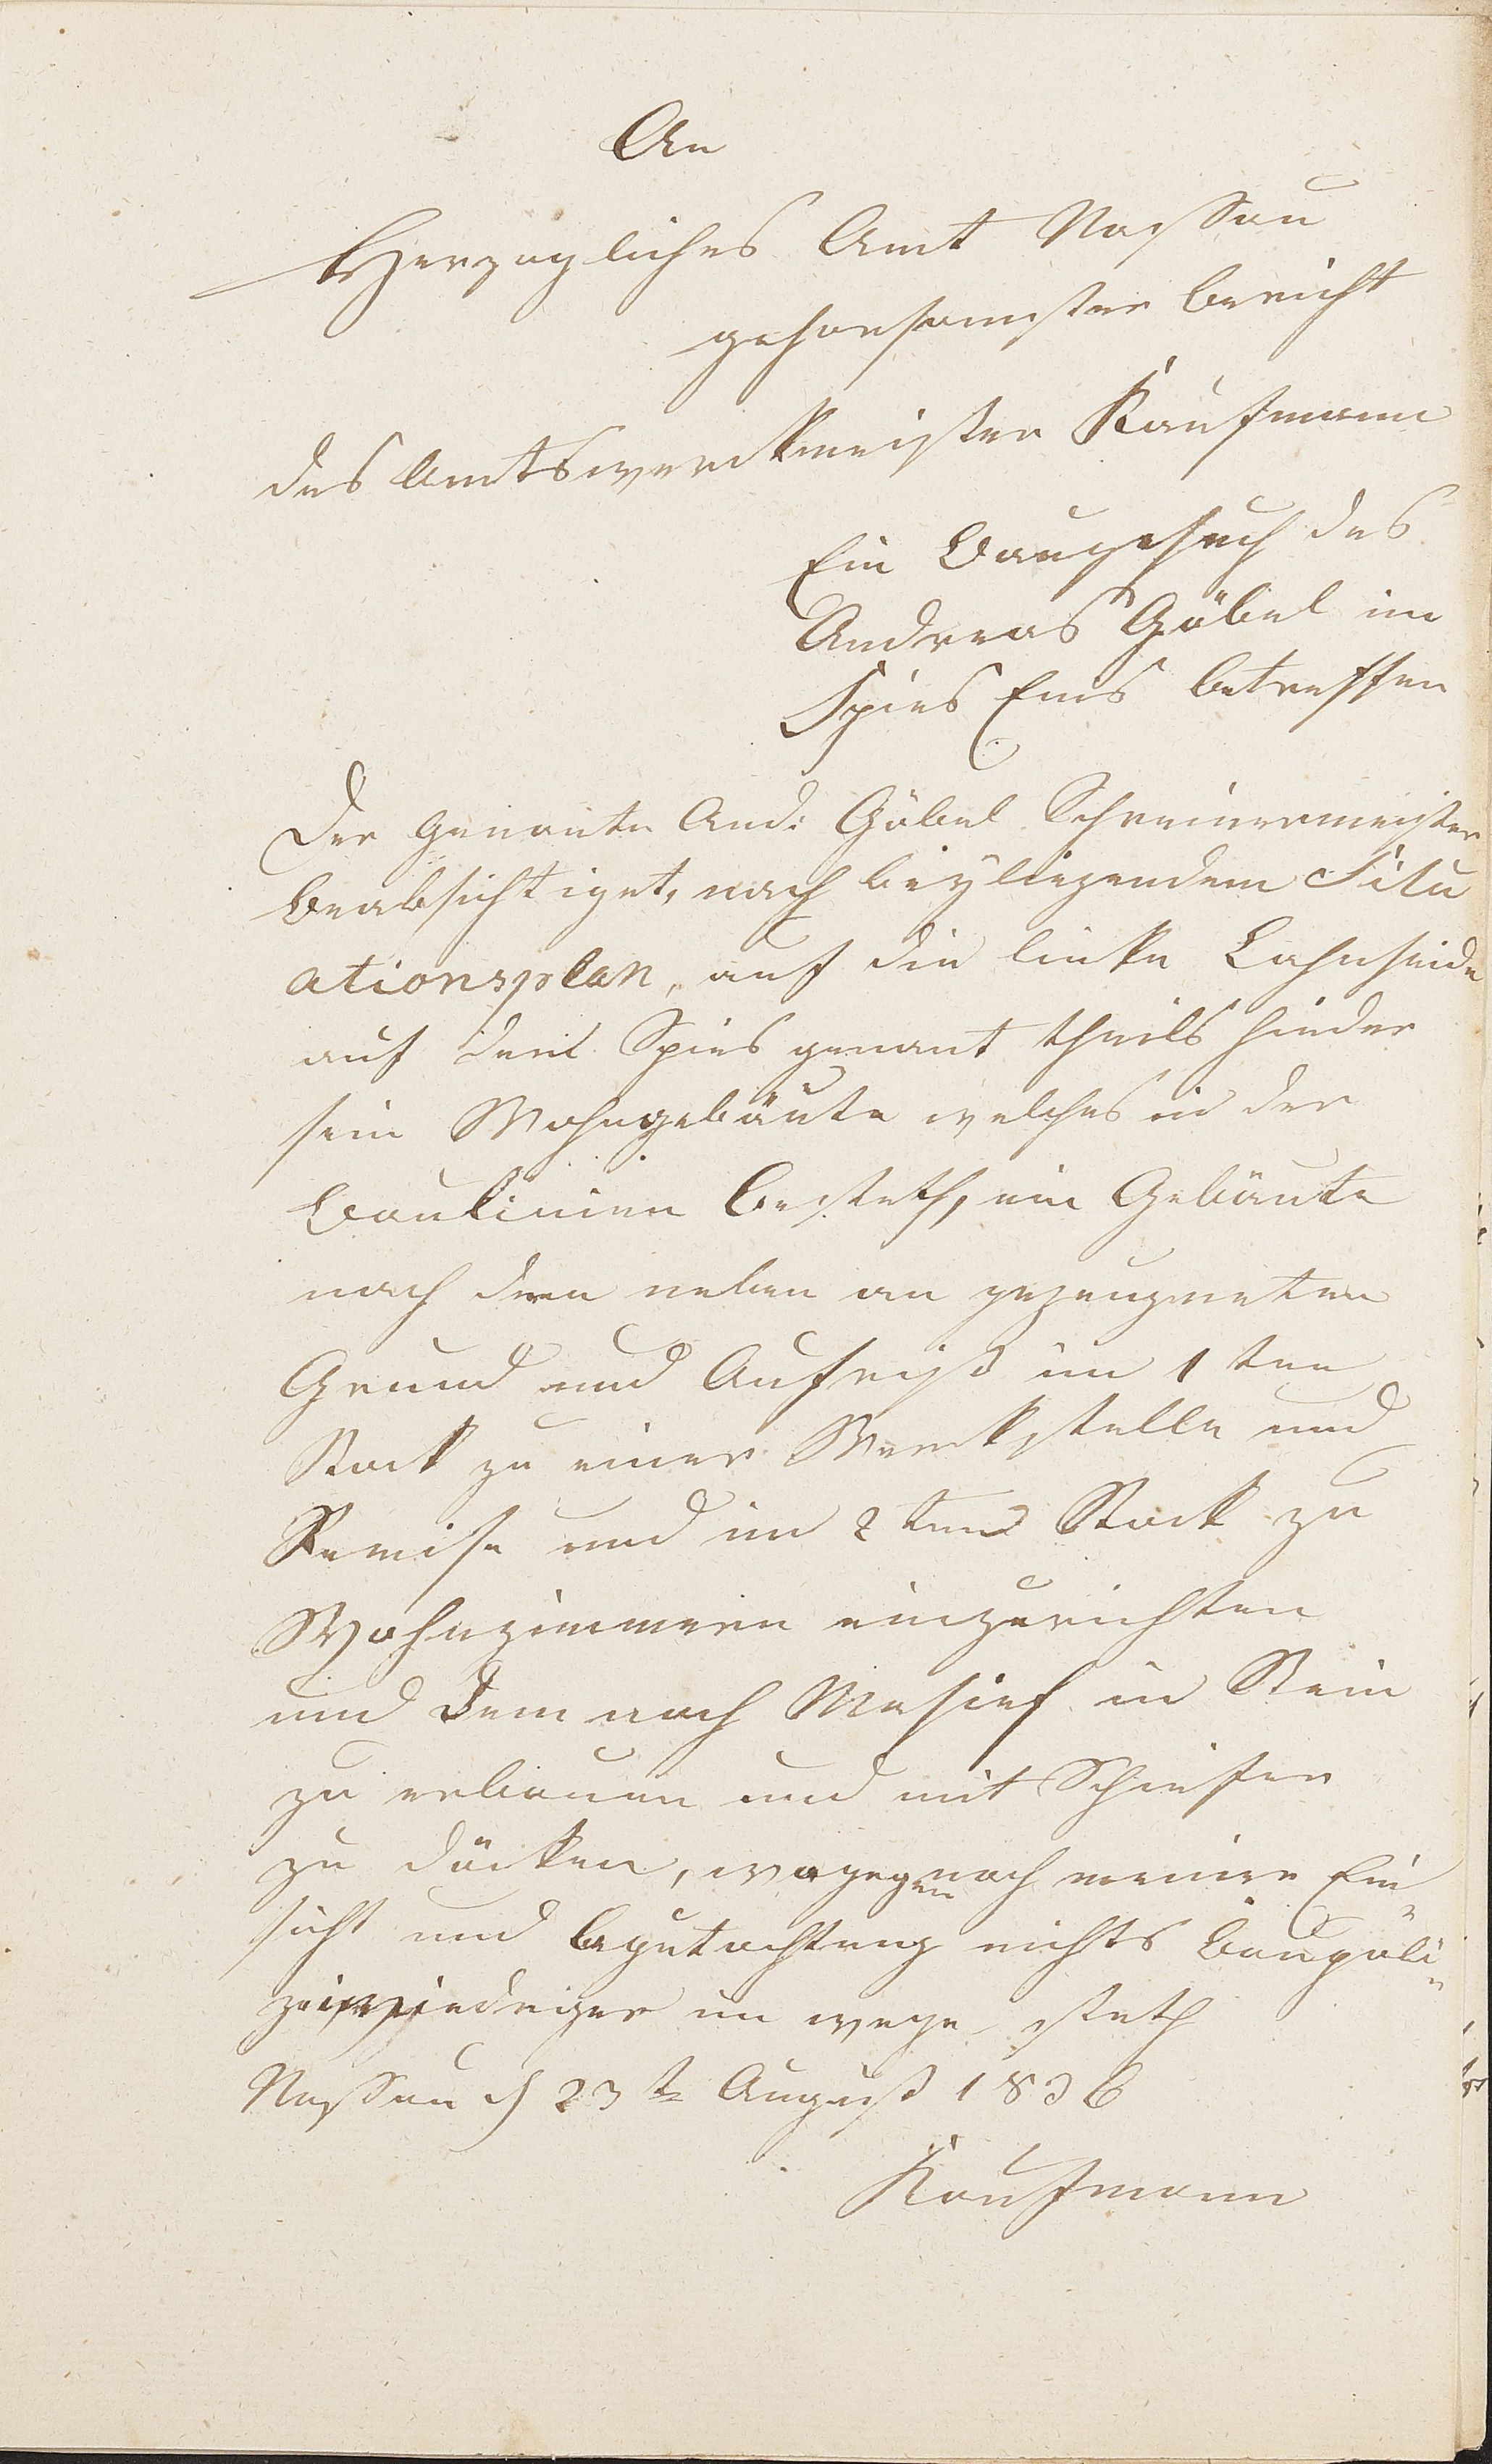 An
Herzogliches Amt Nassau
gehorsamster Bericht
des Amtswerckmeister Kaufmann
Ein Baugesuch des
Andreas Göbel im
Spies Ems betreffen
Der genante And: Göbel Schreinermeister
beabsichtiget, nach beyliegendem Situ
ationsplan, auf die linke Lahnseide
auf dem Spies genant theils hinder
sein Wohngebäute welches in der
Baulinien besteth, ein Gebäute
nach dem neben an gezeugneten
Grund und Aufriß im 1ten
Stock zu einer Werckstelle und
Remise und im 2ten Stock zu
Wohnzimmern einzurichten
und dem nach Masief in Stein
zu erbauen und mit Schiefer
zu däcken, wogegen nach meiner Ein„
sicht und begutachtung nichts Baupoli„
zeiwiedriger im wege steth
Nassau d 23t August 1836
Kaufmann